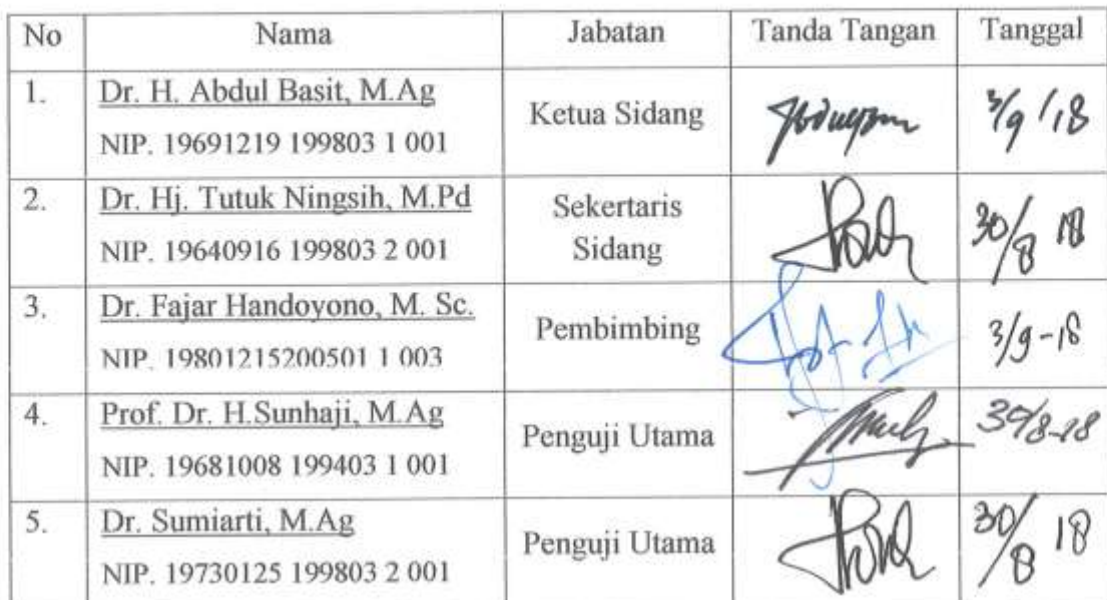 No Nama Jabatan Tanda Tangan Tanggal
1. Dr. H. Abdul Basit, M.Ag
NIP. 19691219 199803 1 001
Ketua Sidang
3/9/18
2. Dr. Hj. Tutuk Ningsih, M.Pd
NIP. 19640916 199803 2 001
Sekertaris
Sidang
30/8 18
3. Dr. Fajar Handoyono, M. Sc.
NIP. 19801215200501 1 003
Pembimbing
3/9-18
4. Prof. Dr. H.Sunhaji, M.Ag
NIP. 19681008 199403 1 001
Penguji Utama
30/8-18
5. Dr. Sumiarti, M.Ag
NIP. 19730125 199803 2 001
Penguji Utama
30/8 18